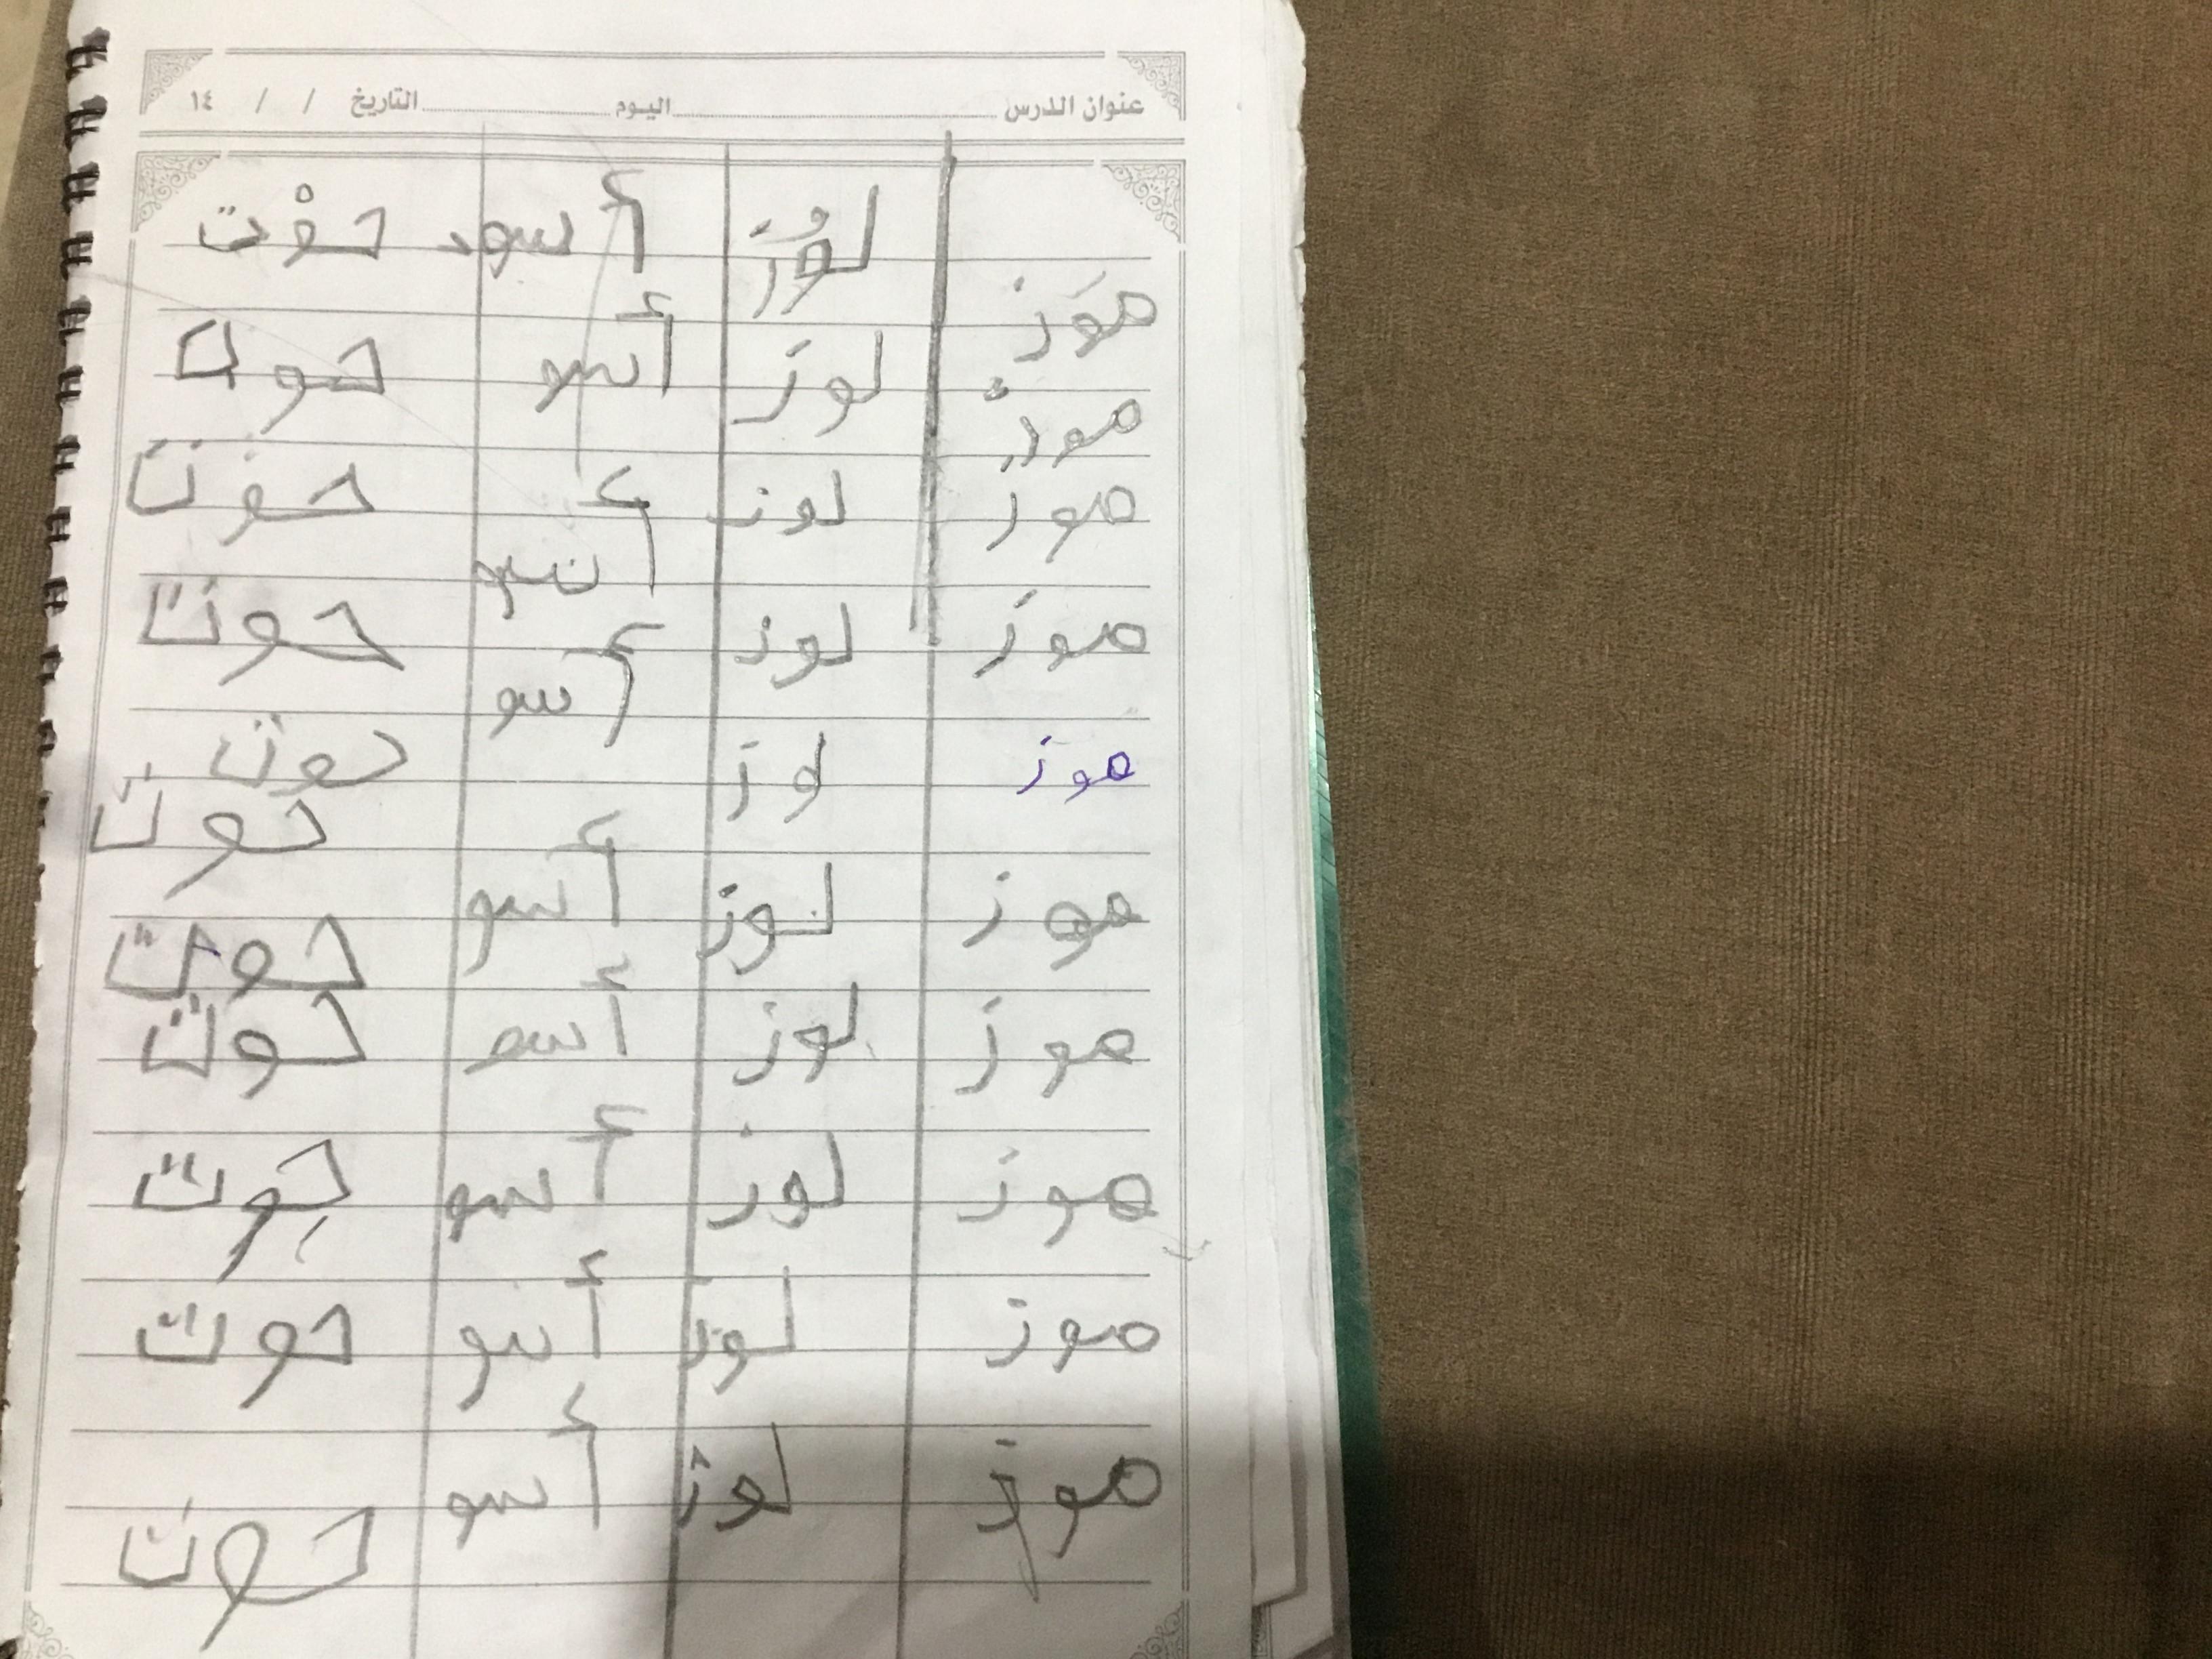 عنوان الدرس اليوم التاريخ / / ١٤
موز لوز أسود حوت
موز لوز أسو حوت
موز لوز أسو حوت
موز لوز أسو حوت
موز لوز حوت
حوت
موز لوز أسو حوت
موز لوز أسو حوت
موز لوز أسو حوت
موز لوز أسو حوت
موز لوز أسو حوت